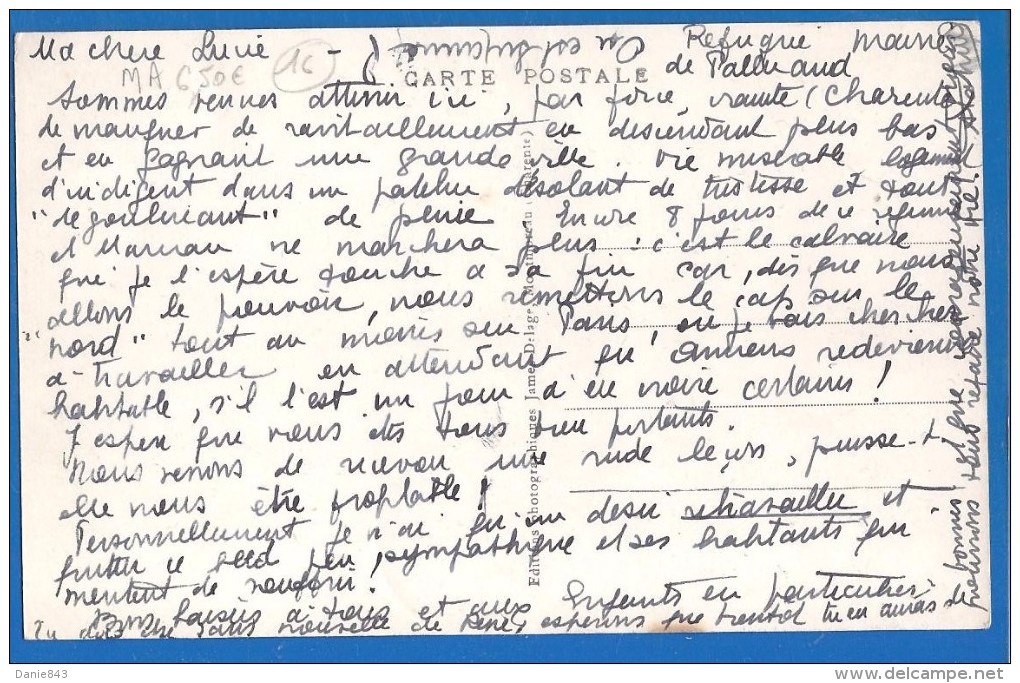 Ma chère Lucie - Refugié Mairie
MA 6,50€ 16 de Palluaud
CARTE POSTALE
Sommes venus atterrir ici, par force, crainte (Charente
de manquer de ravitaillement en descendant plus bas
et en gagnant une grande ville. Vie misérable
d'indigent dans un patelin désolant de tristesse et tout
"dégoulinant" de pluie Encore 8 jours de ce régime
et Maman ne marchera plus : c'est le calvaire
que je l'espère touche à sa fin car, dès que nous
allons le pouvoir, nous remettons le cap sur le
"nord" tout au moins sur Paris, où je vais chercher
à travailler en attendant qu'Amiens redevienne
habitable, s'il l'est un jour d'en croire certains !
J'espère que vous êtes tous bien portants.
Nous venons de recevoir une rude leçon, puisse-t-
elle nous être profitable !
Personnellement je n'ai qu'un désir retravailler et
quitter ce bled peu sympathique et ses habitants qui
méritent de souffrir !
Bons baisers à tous et aux Enfants en particulier
Tu dois être sans nouvelle de René, espérons que bientôt tu en auras de
bonnes
Editions photographiques James Delage, (Charente)
Danie843
delcampe.net